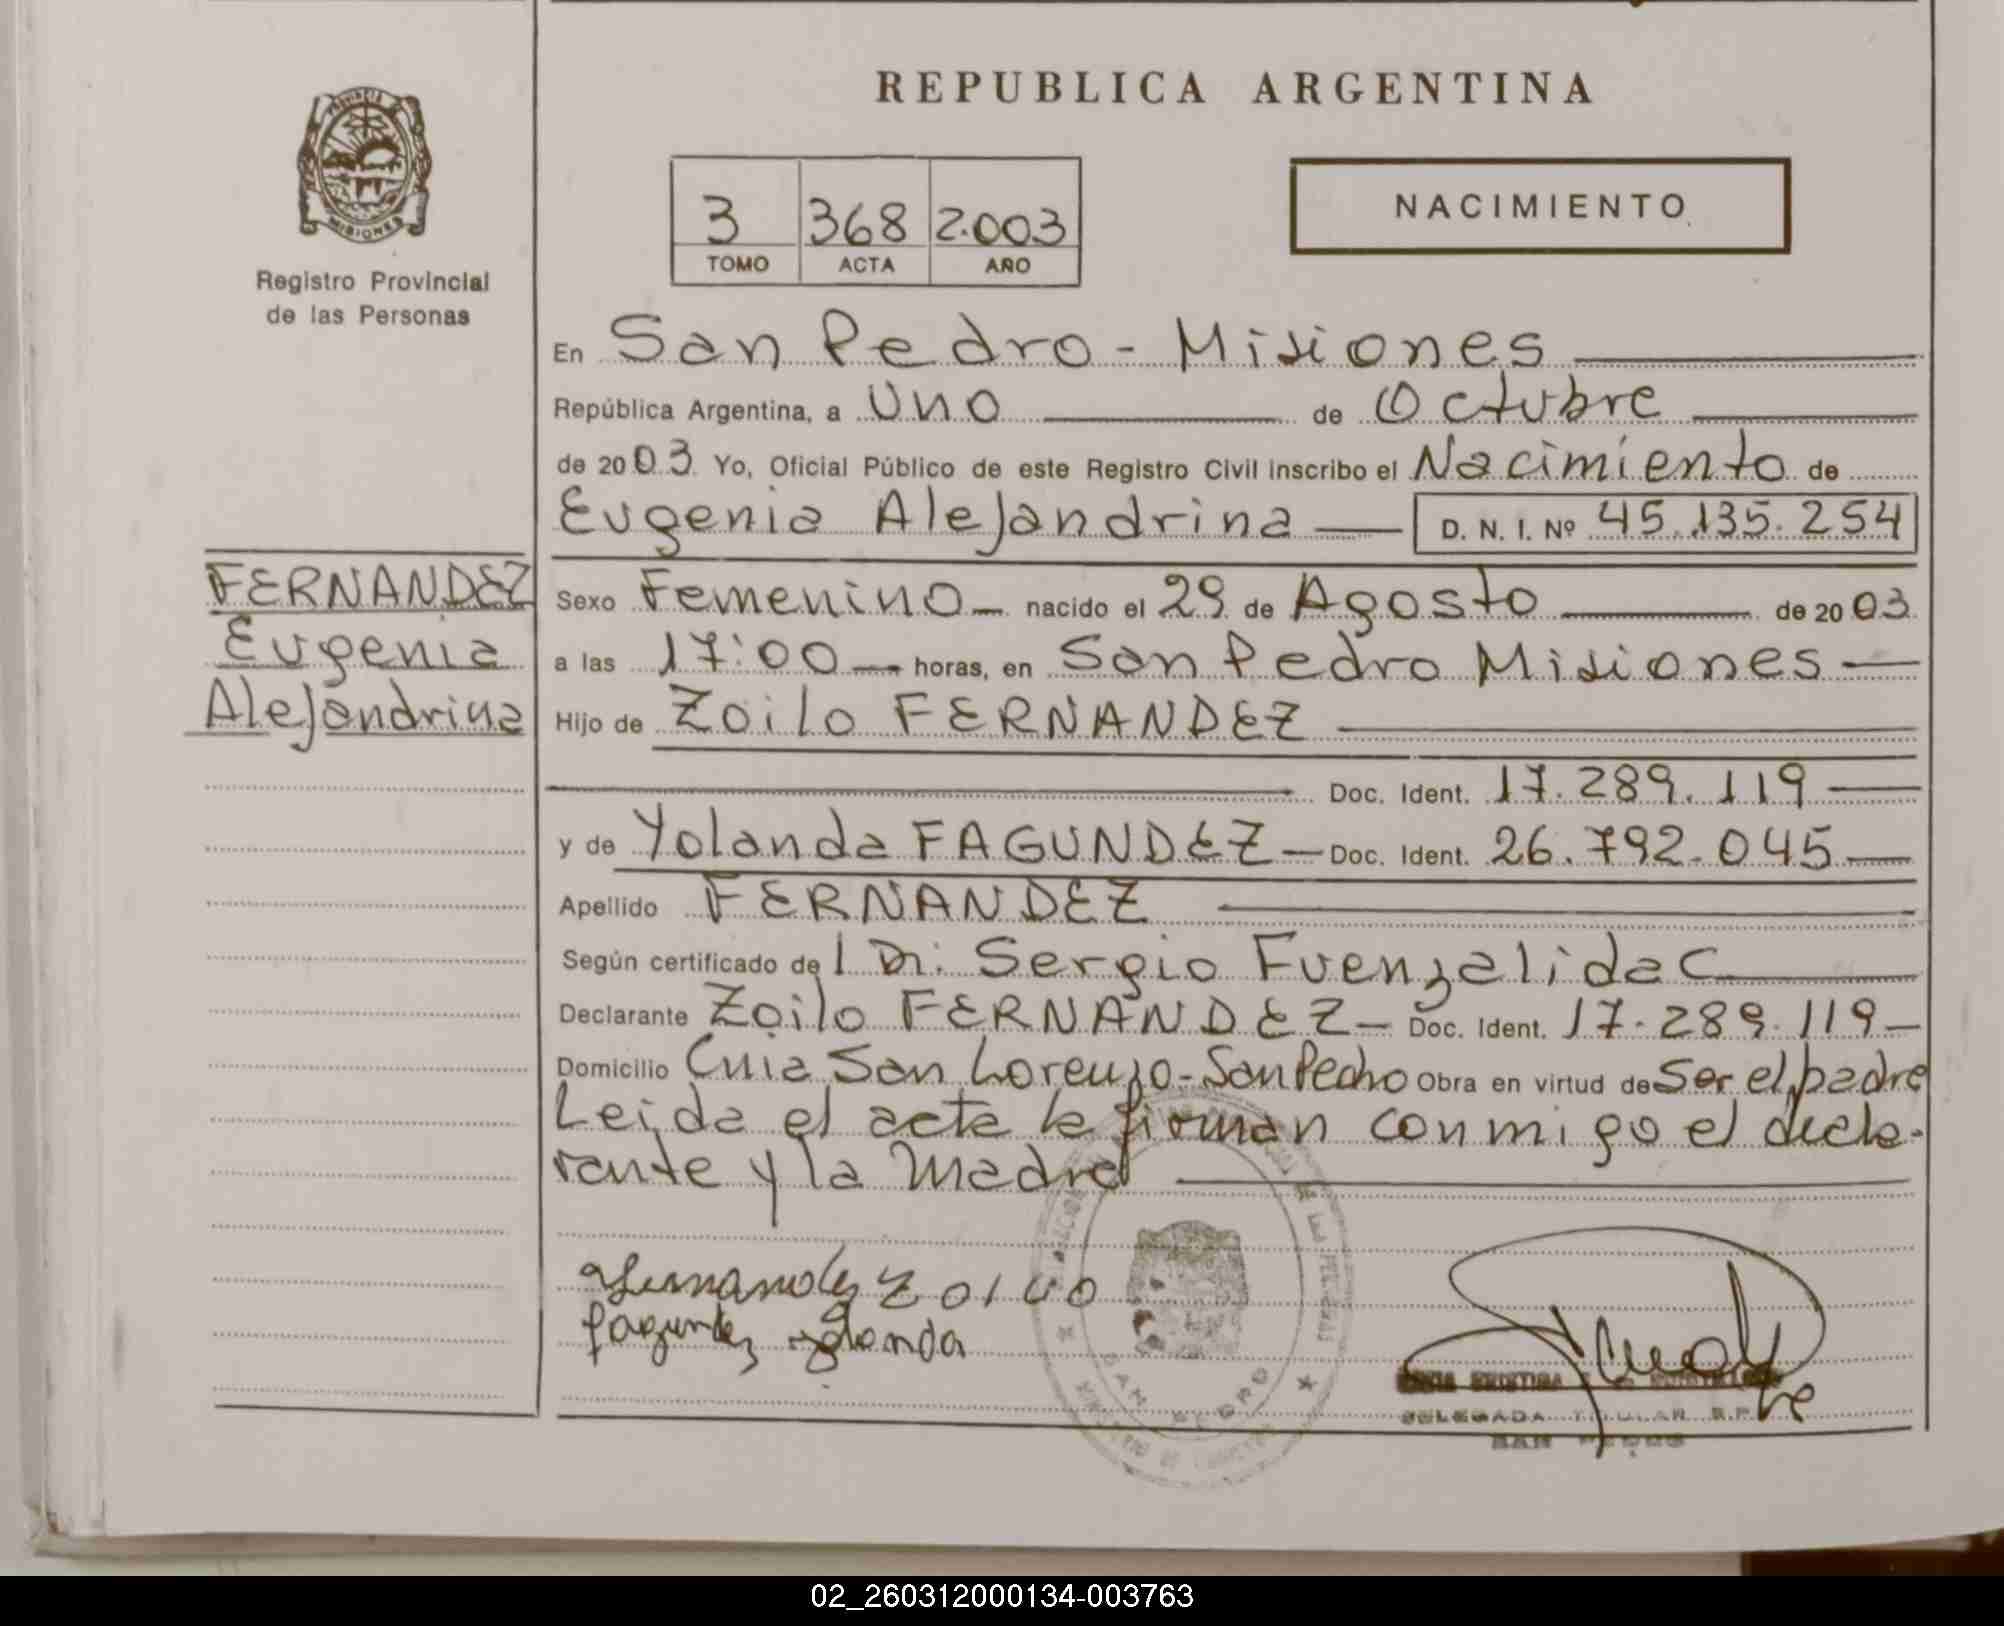 REPUBLICA ARGENTINA
PROVINCIA
MISIONES
Registro Provincial
de las Personas
NACIMIENTO
3 368 2.003
TOMO ACTA AÑO
En San Pedro - Misiones
República Argentina, a Uno de Octubre
de 2003 Yo, Oficial Público de este Registro Civil inscribo el Nacimiento de
Eugenia Alejandrina D. N. I. Nº 45.135.254
FERNANDEZ
Eugenia
Alejandrina
Sexo Femenino nacido el 29 de Agosto de 2003
a las 17:00 horas, en San Pedro Misiones
Hijo de Zoilo FERNANDEZ
Doc. Ident. 17.289.119
y de Yolanda FAGUNDEZ Doc. Ident. 26.792.045
Apellido FERNANDEZ
Según certificado de l Dr. Sergio Fuenzalida C
Declarante Zoilo FERNANDEZ Doc. Ident. 17.289.119
Domicilio Cuia San Lorenzo - San Pedro Obra en virtud de Ser el padre
Leida el acta la firman conmigo el decla-
rante y la Madre
Fernandez ZOILO
fagundez yolanda
SAN PEDRO
CRISTINA
DELEGADA TITULAR R.P.
SAN PEDRO
02_260312000134-003763